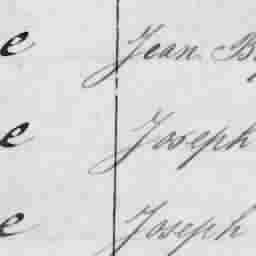 e Jean B
e Joseph
e Joseph